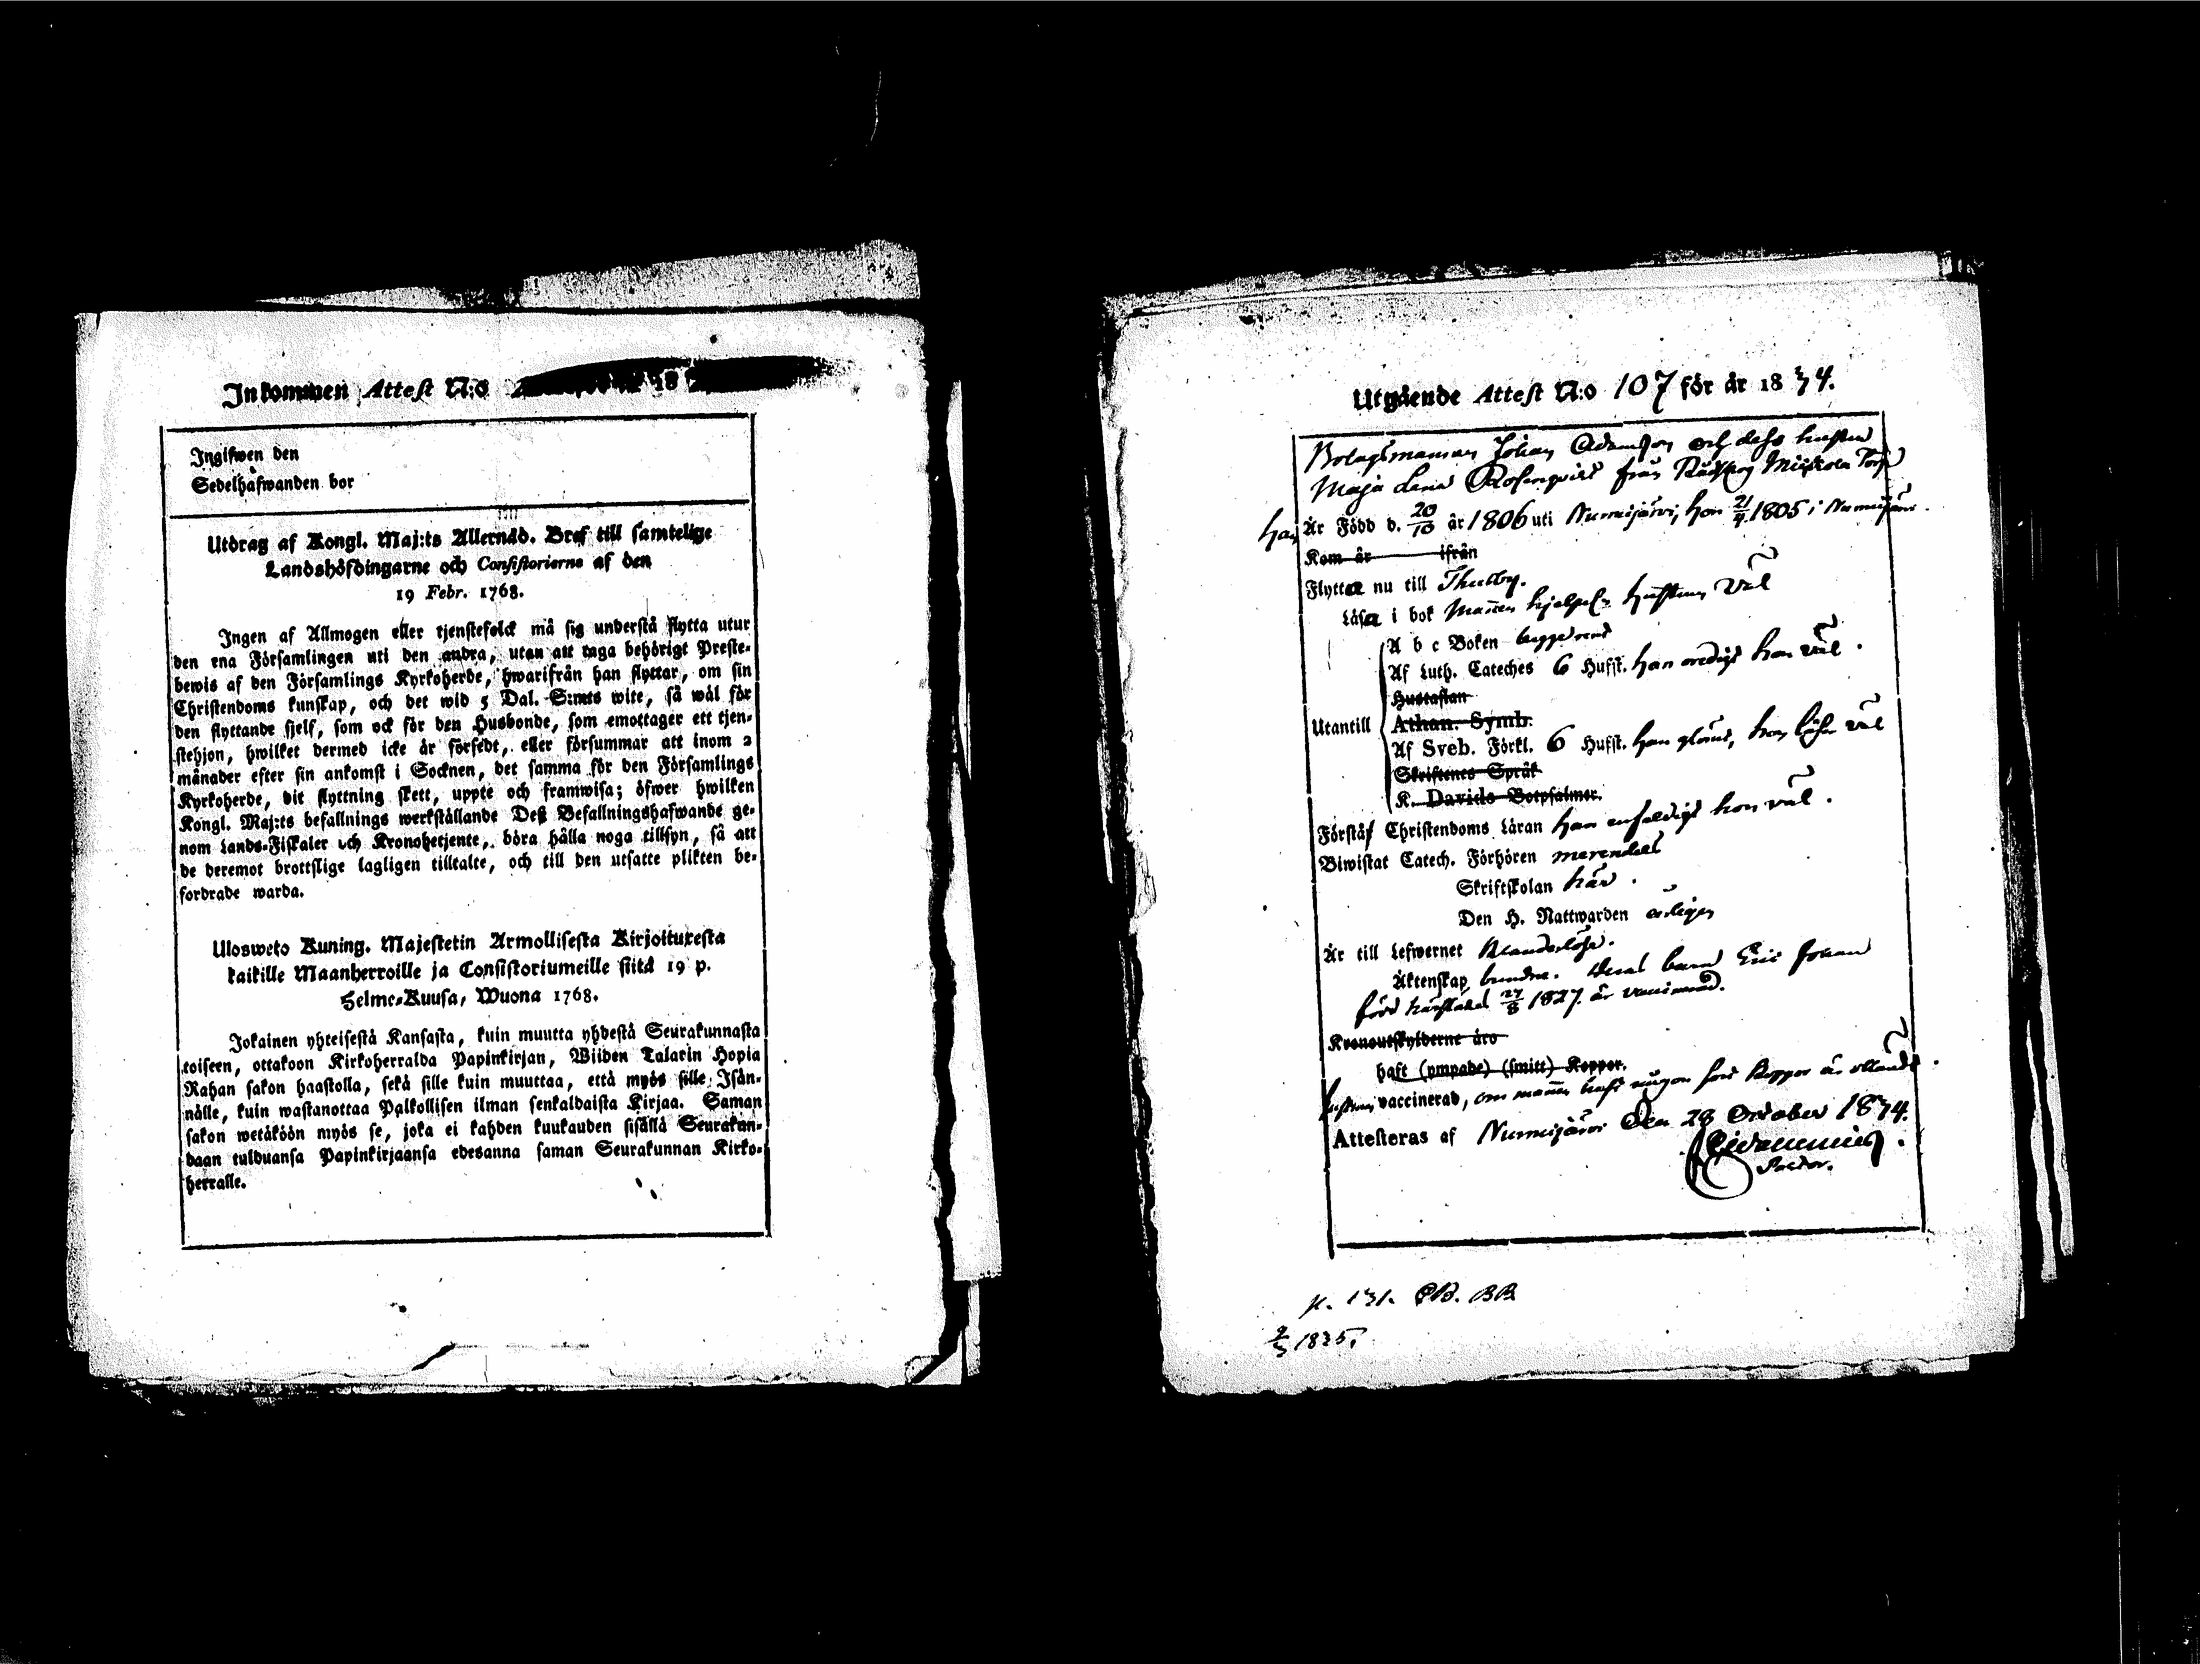 Inkommen Attest N:o 18
Ingifwen den
Sedelhåfwanden bor
Utdrag af Kongl. Maj:ts Allernåd. Bref till samtelige
Landshöfdingarne och Consistorierne af den
19 Febr. 1768.
Ingen af Allmogen eller tjenstefolck må sig understå flytta utur
den ena Församlingen uti den andra, utan att taga behörigt Preste-
bewis af den Församlings Kyrkoherde, hwarifrån han flyttar, om sin
Christendoms kunskap, och det wid 5 Dal. S:mts wite, så wål för
den flyttande sjelf, som ock för den Husbonde, som emottager ett tjen-
stehjon, hwilket dermed icke år försedt, eller försummar att inom 2
månader efter sin ankomst i Socknen, det samma för den Församlings
Kyrkoherde, dit flyttning skett, uppte och framwisa; öfwer hwilken
Kongl. Maj:ts befallnings werkstållande Deß Befallningshafwande ge-
nom Lands-Fiskaler och Kronobetjente, böra hålla noga tillsyn, så att
de deremot brottslige lagligen tilltalte, och till den utsatte plikten be-
fordrade warda.
Ulosweto Kuning. Majestetin Armollisesta Kirjoituxesta
kaikille Maanherroille ja Consistoriumeille siitå 19 p.
Helme-Kuusa, Wuona 1768.
Jokainen yhteisestå Kansasta, kuin muutta yhdestå Seurakunnasta
toiseen, ottakoon Kirkoherralda Papinkirjan, Wiiden Talarin Hopia
Rahan sakon haastolla, sekå sille kuin muuttaa, ettå myös sille Isån-
nålle, kuin wastanottaa Palkollisen ilman senkaldaista Kirjaa. Saman
sakon wetåköön myös se, joka ei kahden kuukauden sisållå Seurakun-
daan tulduansa Papinkirjaansa edesanna saman Seurakunnan Kirko-
herralle.
Utgående Attest N:o 107 för år 1834.
Bolagsmannen Johan Adamson och dess hustru
Maja Lena Rosenqvist från Torp
han År Född d. 20/10 år 1806 uti Nurmijärvi, hon 21/4 1805 i Nurmijärvi.
Kom år ifrån
Flyttar nu till Thusby.
Läsa i bok Mannen hjelpel. hustrun väl
A b c Boken begge rent
Af Luth. Cateches 6 Hufst. han oredigt hon väl.
Hustaflan
Utantill Athan. Symb.
Af Sveb. Förkl. 6 Hufst. han glömt, hon väl
Skriftenes Språk
K. Davids Botpsalmer.
Förstå Christendoms Låran han enfaldigt hon väl.
Biwistat Catech. Förhören merendels
Skriftskolan här.
Den H. Nattwarden årligen
År till Lefwernet klanderlöse.
Åktenskap bundne. Deras barn Eric Johan
född härstädes 27/8 1827. är vaccinerad.
Kronoutskylderne åro
haft (ympade) (smitt) Koppor.
hustrun vaccinerad, om mannen haft någon sort koppor är okändt.
Attesteras af Nurmijärvi Den 28 October 1834.
Pastor.
p. 131. CB. BB
2/3 1835.